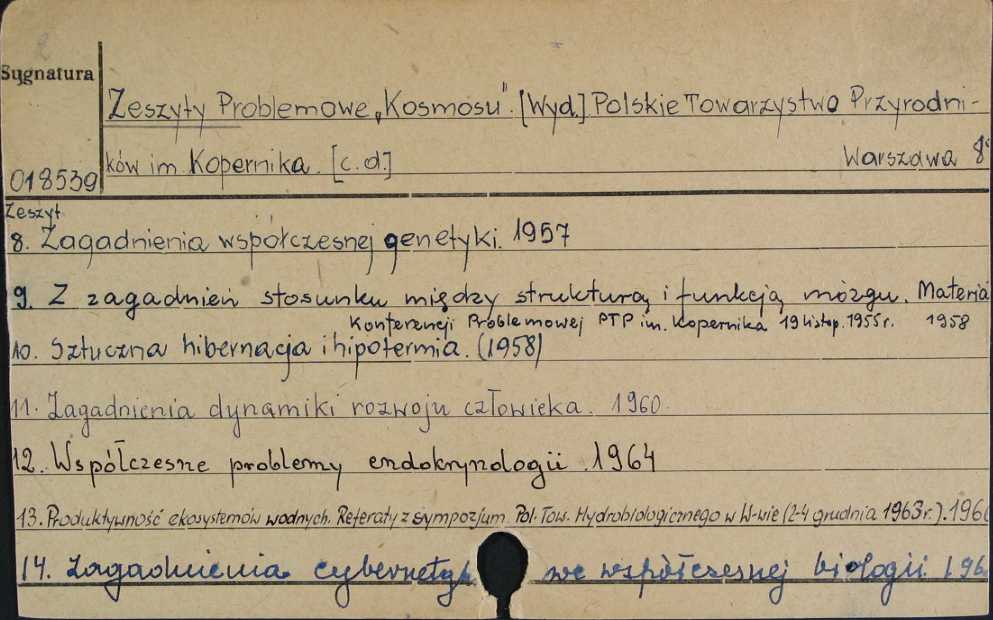 Sygnatura
Zeszyty Problemowe „Kosmosu”. [Wyd.] Polskie Towarzystwo Przyrodni-
018539 ków im Kopernika. [c.d.] Warszawa 8°
Zeszyt
8. Zagadnienia współczesnej genetyki. 1957
9. Z zagadnień stosunku między strukturą i funkcją mózgu. Materia
Konferencji Problemowej PTP im. Kopernika 19 listop. 1955r. 1958
10. Sztuczna hibernacja i hipotermia. (1958)
11. Zagadnienia dynamiki rozwoju człowieka. 1960.
12. Współczesne problemy endokrynologii. 1964
13. Produktywność ekosystemów wodnych. Referaty z sympozjum Pol. Tow. Hydrobiologicznego w W-wie (2-4 grudnia 1963r.).
14. Zagadnienia we współczesnej biologii